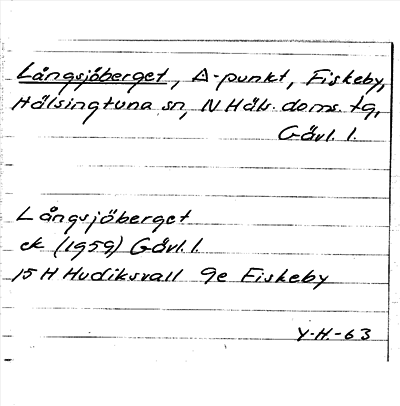 Långsjöberget, Δ-punkt, Fiskeby,
Hälsingtuna sn, N Häls. doms. tg,
Gävl. l.
Långsjöberget
ek (1959) Gävl. l.
15 H Hudiksvall 9e Fiskeby
Y.H.-63